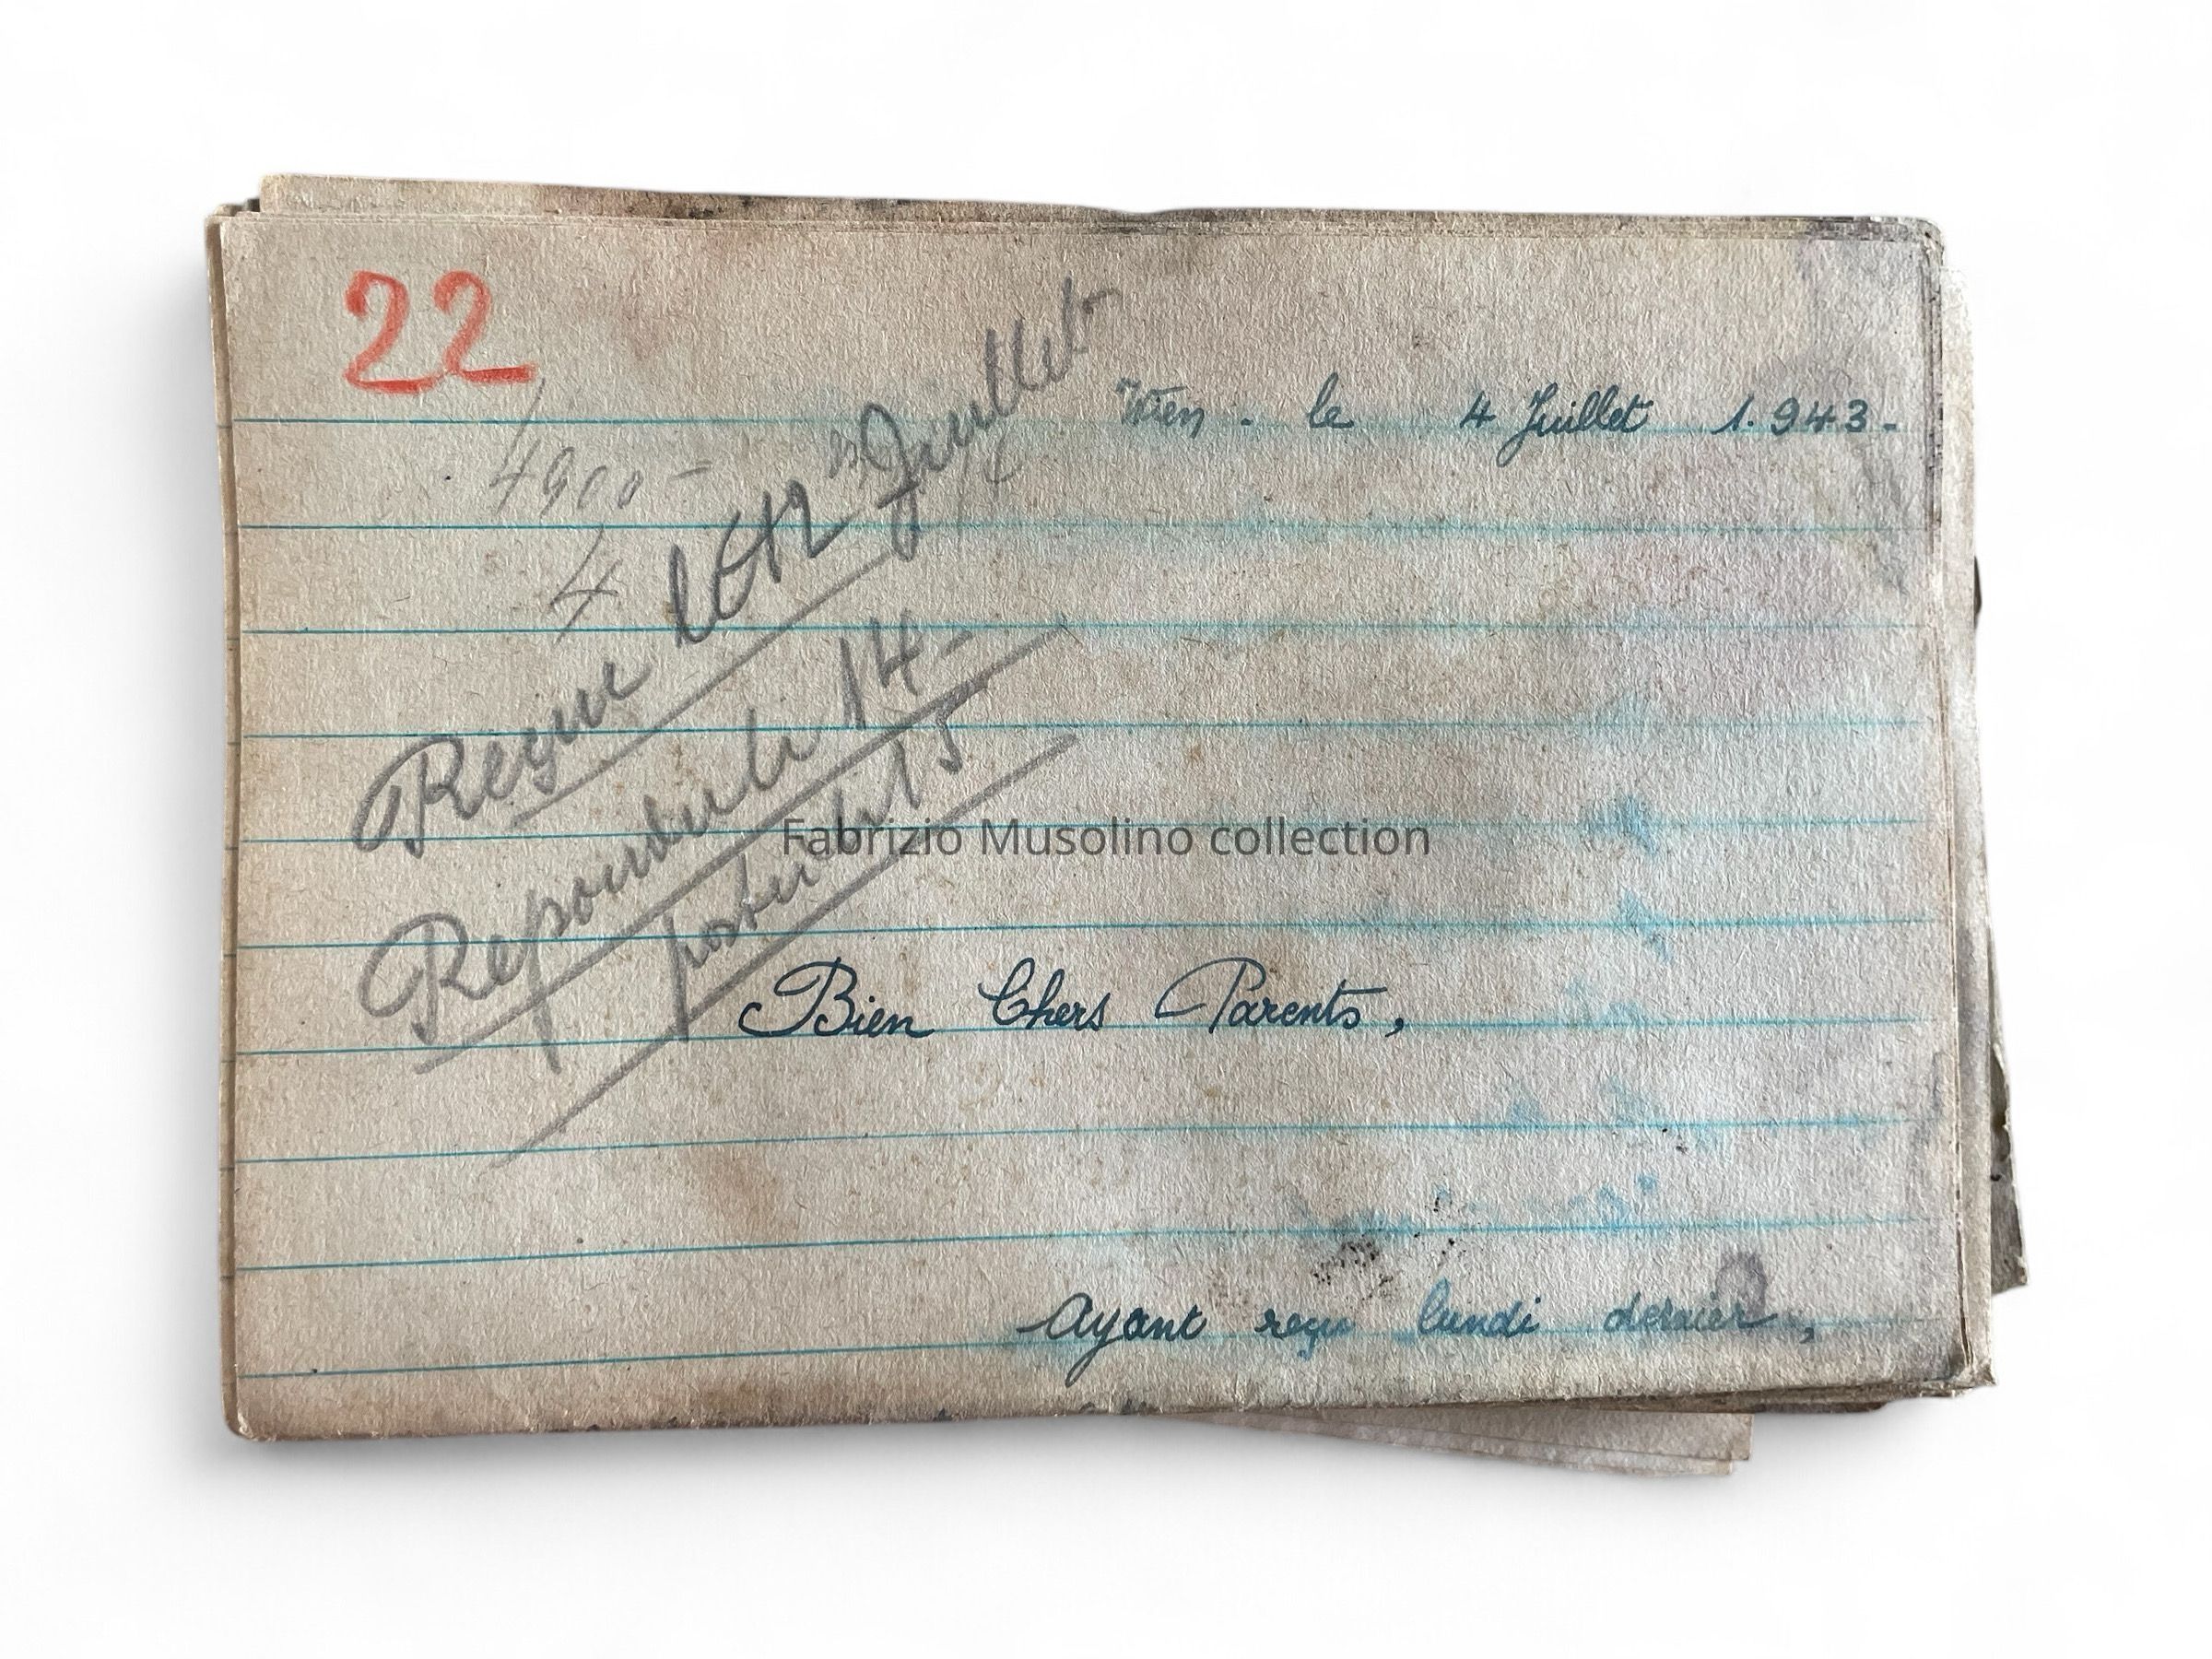 22
Wien. le 4 Juillet 1.943-
4900-
4
Reçue le 12 Juillet
Repondu le 14-
posté le 15
Fabrizio Musolino collection
Bien Chers Parents,
Ayant reçu lundi dernier,